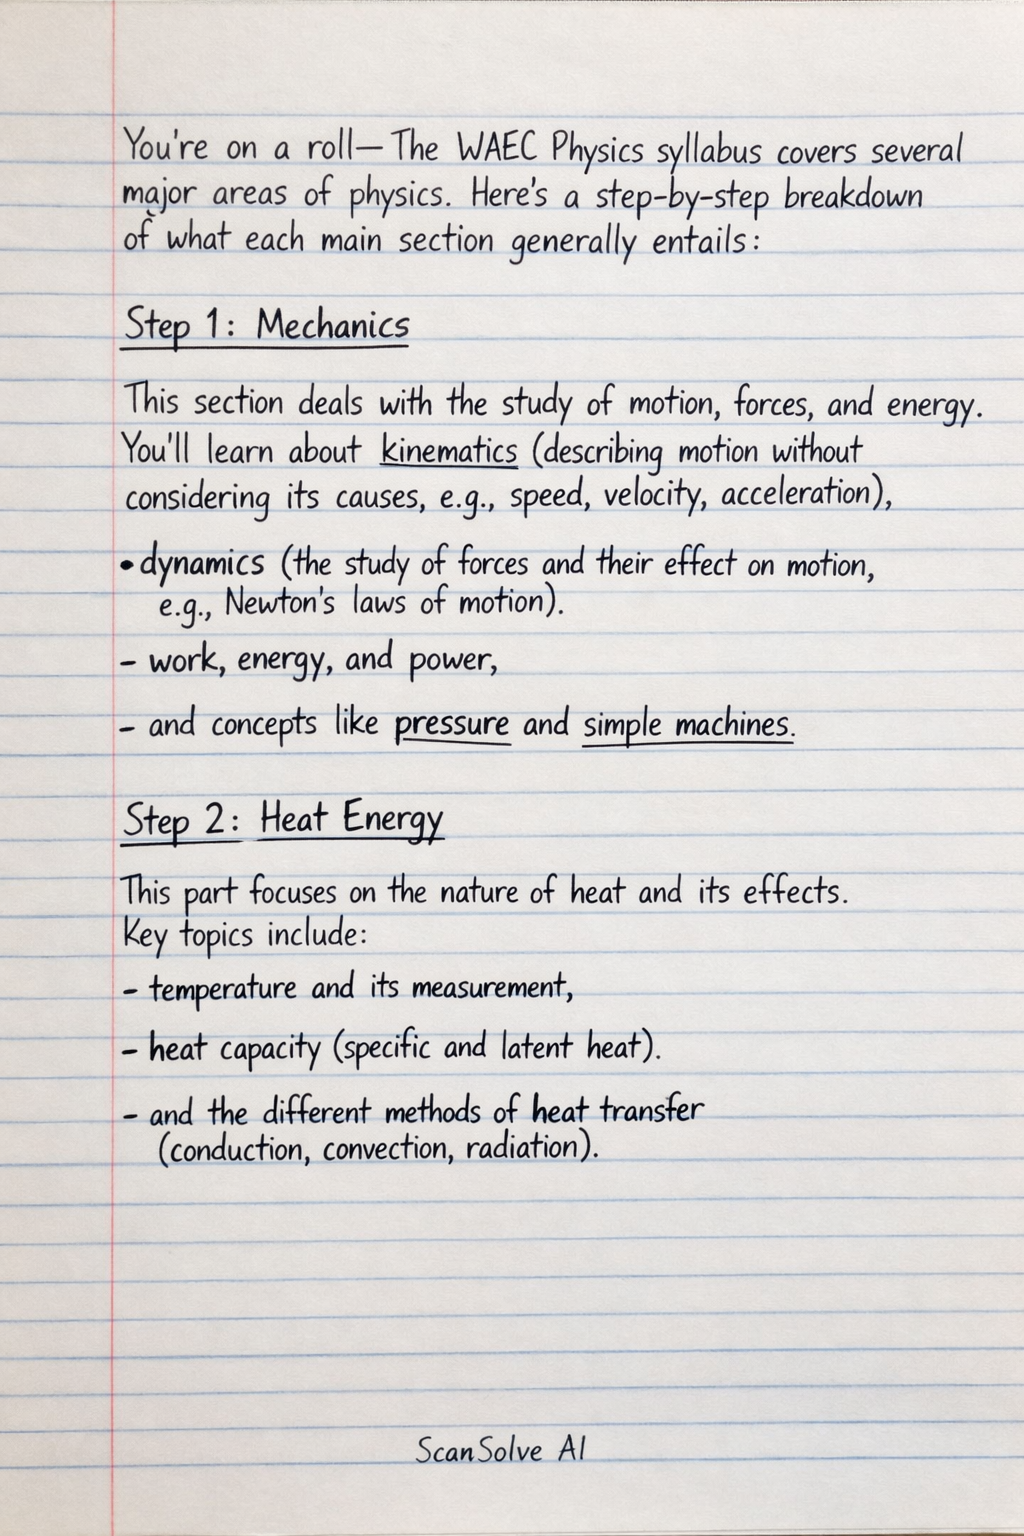 You're on a roll—The WAEC Physics syllabus covers several
major areas of physics. Here's a step-by-step breakdown
of what each main section generally entails:
Step 1: Mechanics
This section deals with the study of motion, forces, and energy.
You'll learn about kinematics (describing motion without
considering its causes, e.g., speed, velocity, acceleration),
• dynamics (the study of forces and their effect on motion,
e.g., Newton's laws of motion).
- work, energy, and power,
- and concepts like pressure and simple machines.
Step 2: Heat Energy
This part focuses on the nature of heat and its effects.
Key topics include:
- temperature and its measurement,
- heat capacity (specific and latent heat).
- and the different methods of heat transfer
(conduction, convection, radiation).
ScanSolve AI